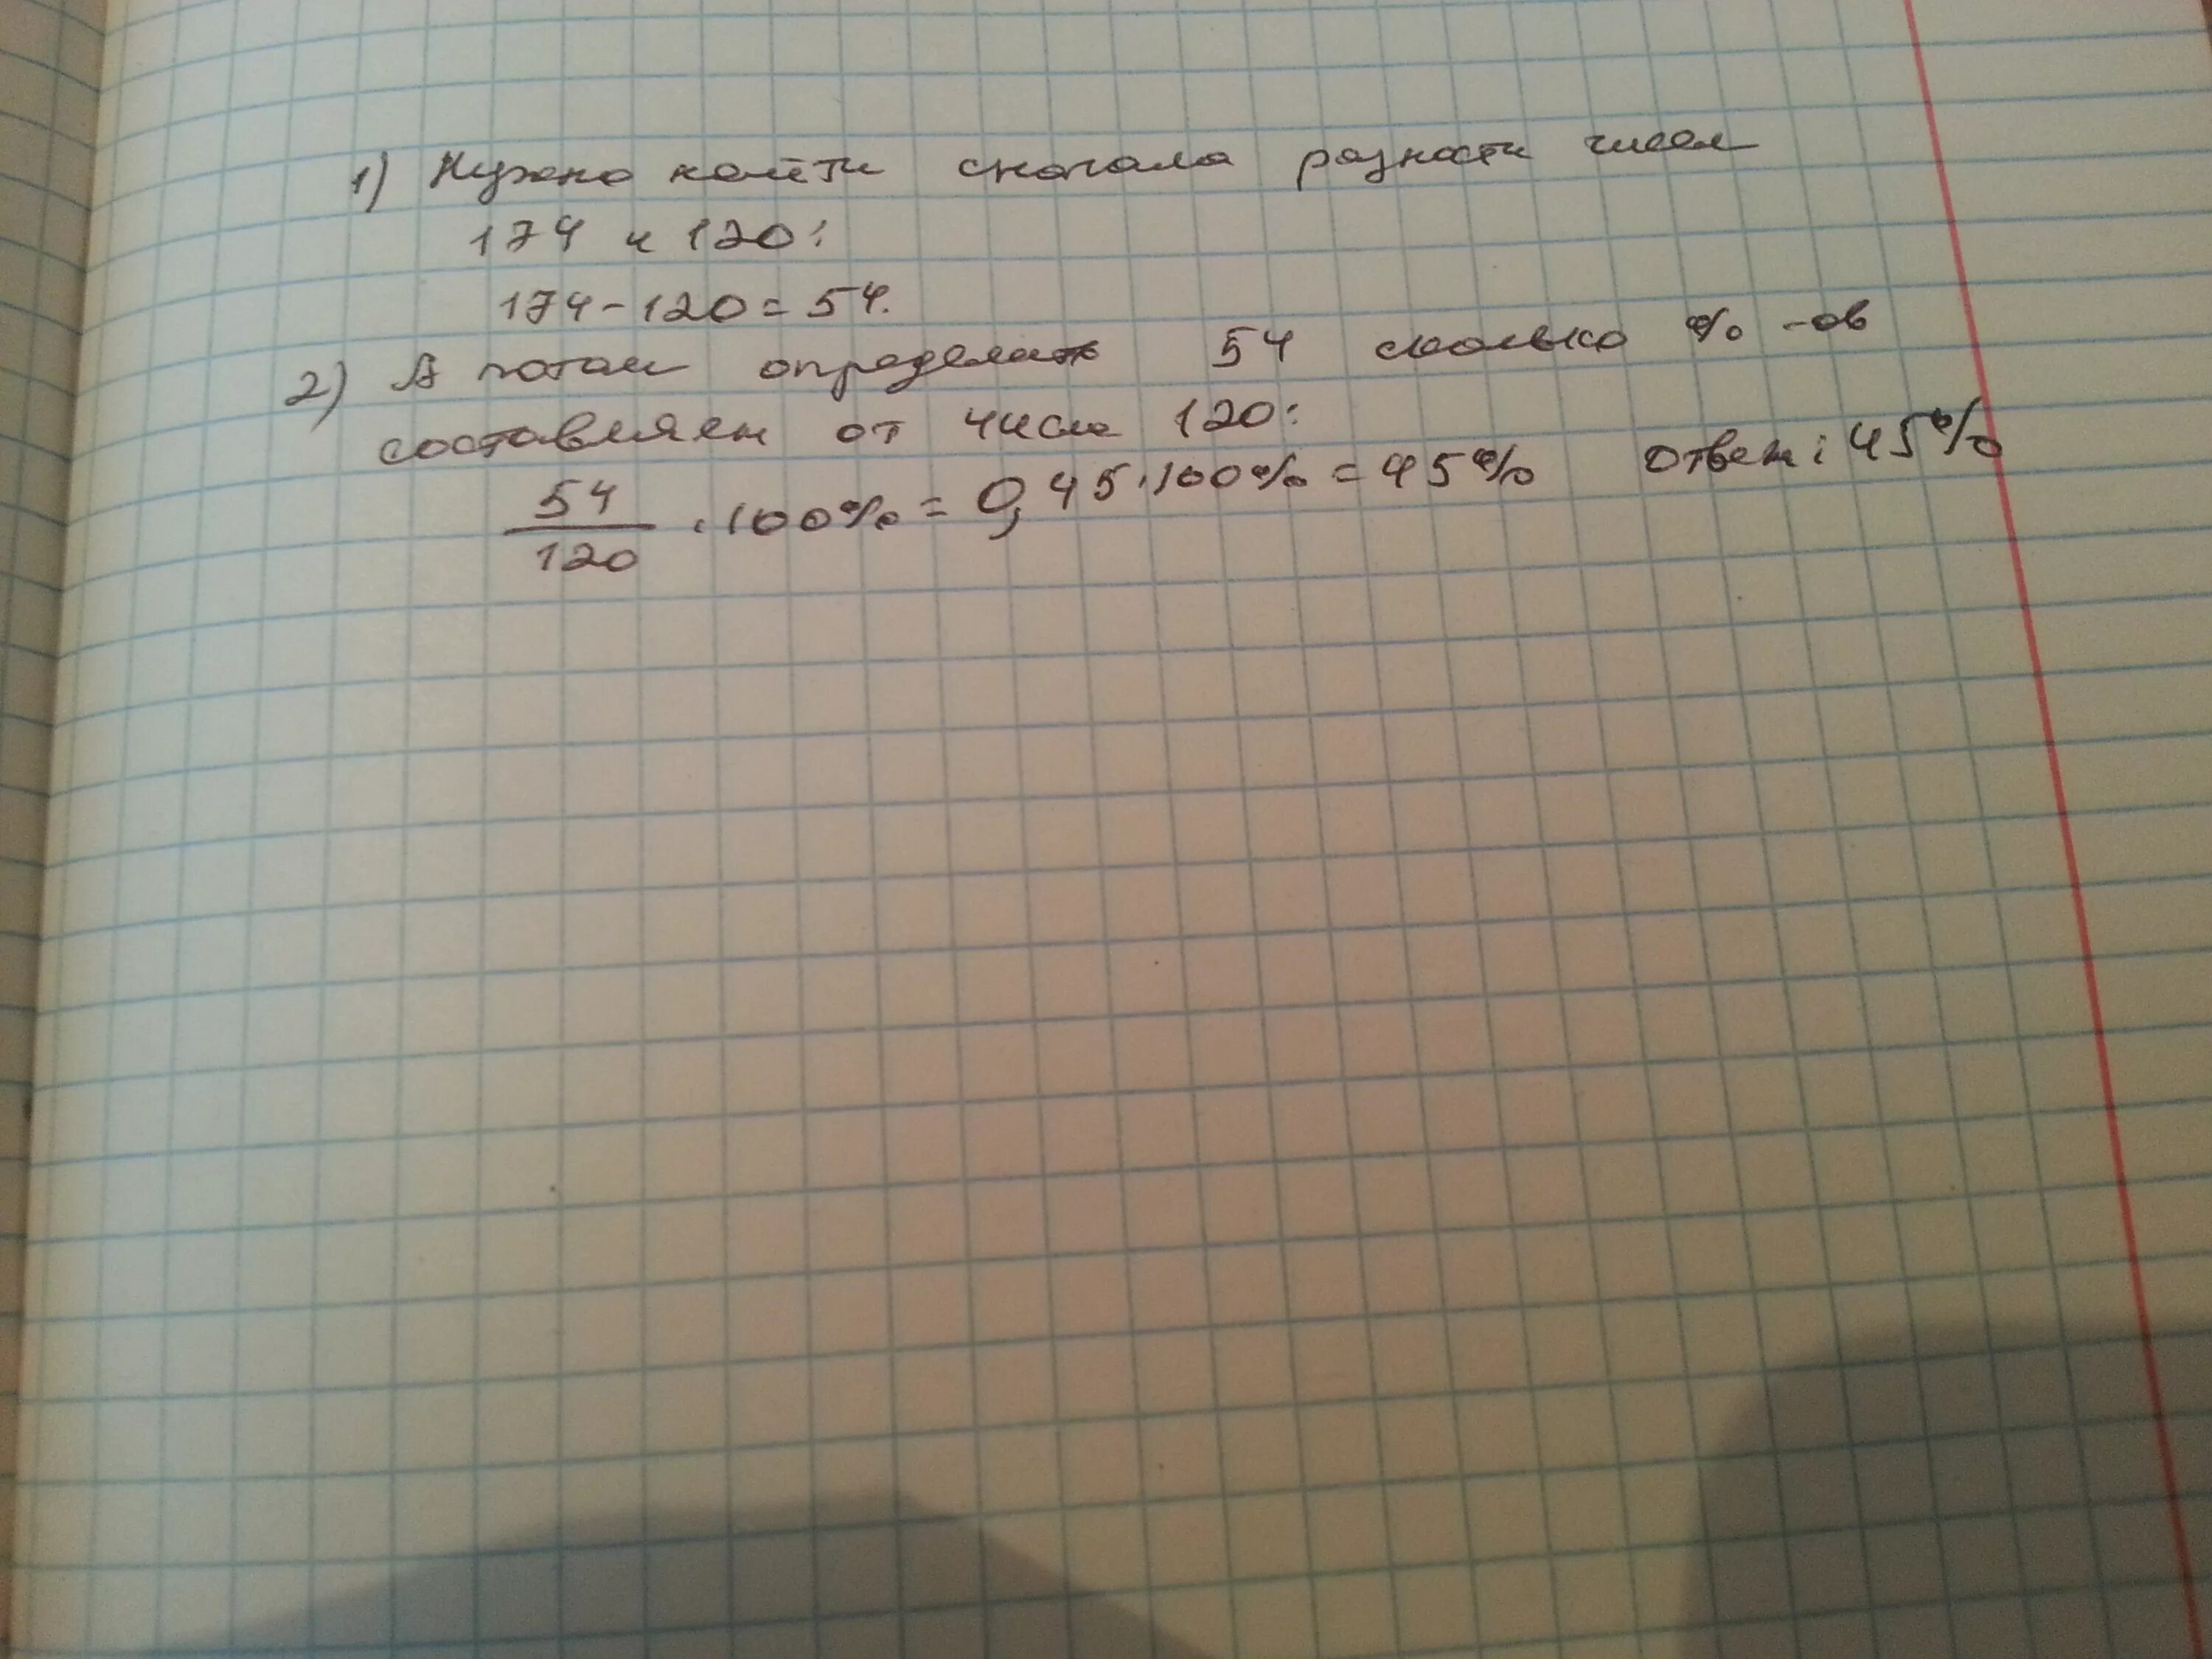 1) Нужно найти сначала разность чисел
174 и 120:
174-120=54.
2) А потом определить 54 сколько %-ов
составляет от числа 120:
54/120 · 100% = 0,45·100% = 45% Ответ: 45%